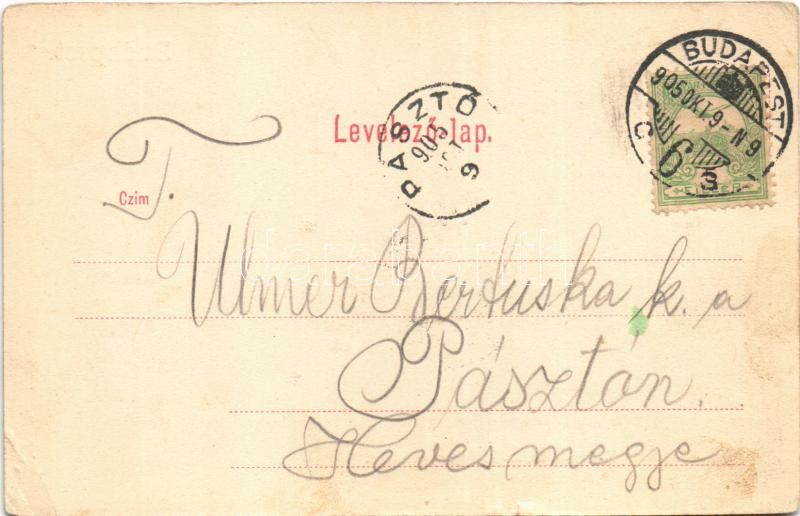 BUDAPEST
905 OKT. 9 - N 9
C 6 3
PÁSZTÓ
905
9
Levelező-lap.
T.
Czim
Ulmer Bertuska k. a
Pásztón.
Heves megye
darabanth